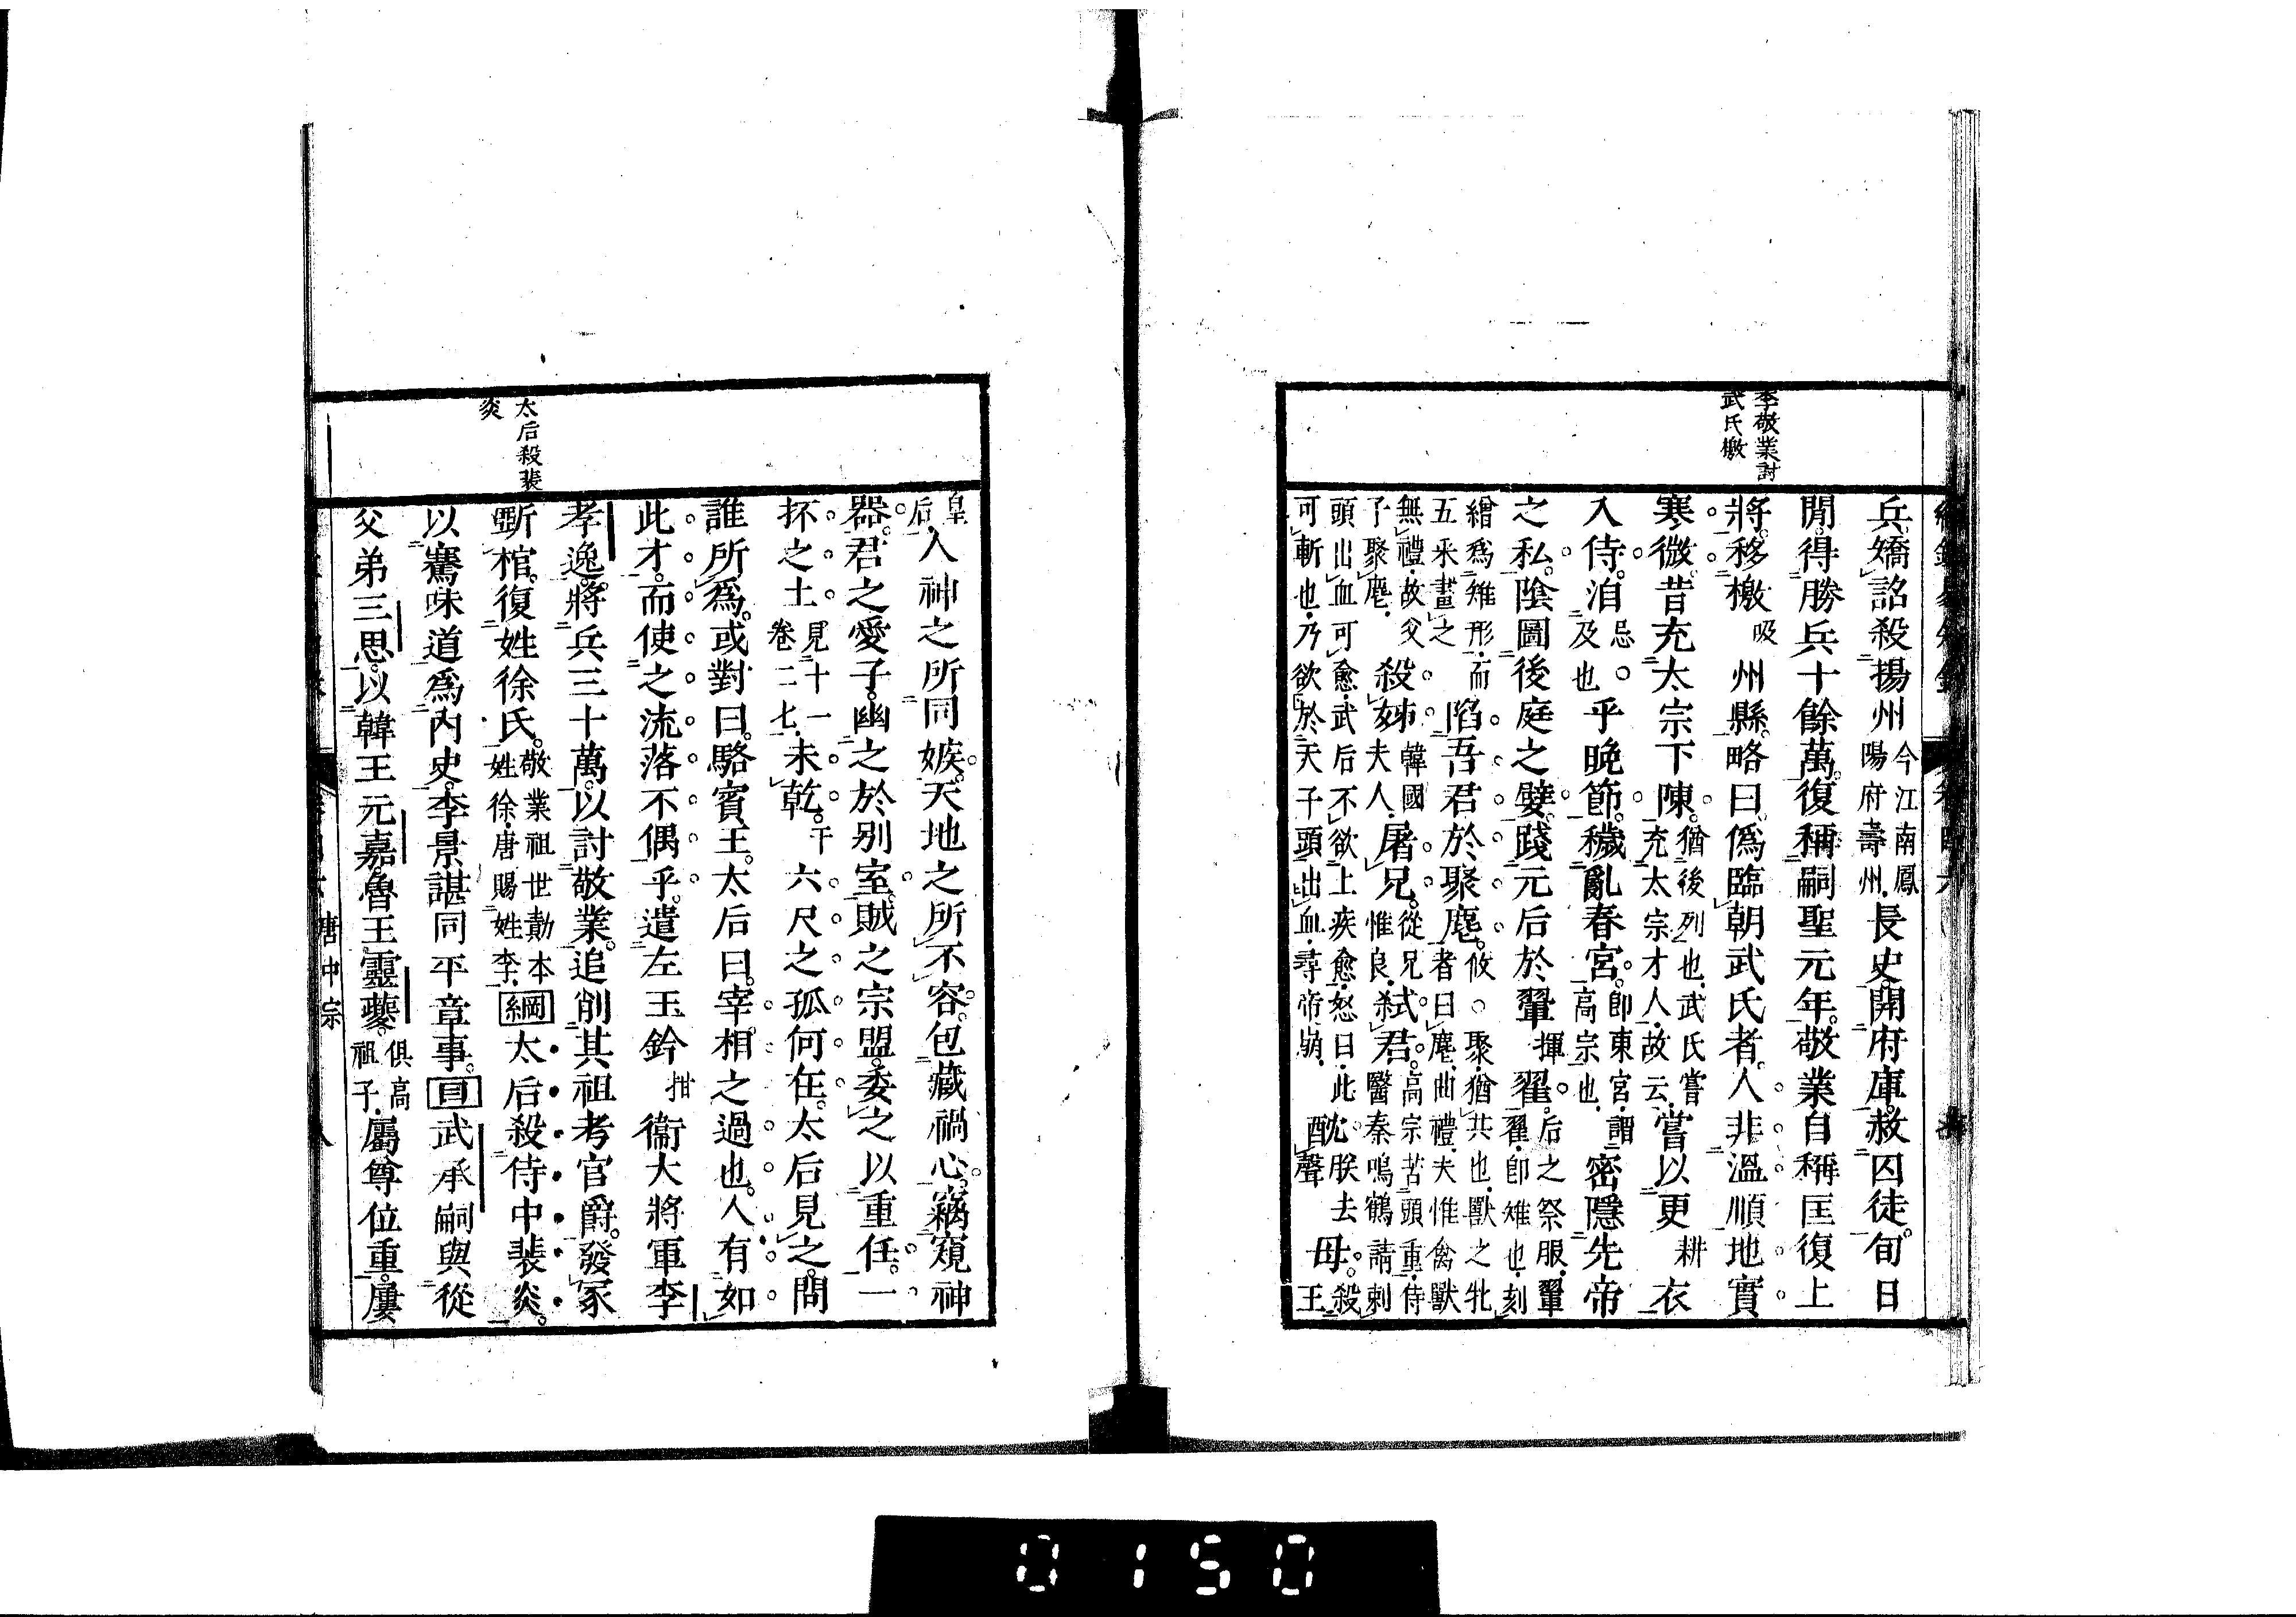 李敬業討
武氏檄
兵。矯詔殺揚州今江南鳳陽府壽州。長史。開府庫。赦囚徒。旬日
間。得勝兵十餘萬。復稱嗣聖元年。敬業自稱匡復上
將。移檄吸州縣。略曰。偽臨朝武氏者。人非溫順。地實
寒微。昔充太宗下陳。猶後列也。武氏嘗充太宗才人。故云。嘗以更耕衣
入侍。洎忌。及也。乎晚節。穢亂春宮。卽東宮。謂高宗也。密隱先帝
之私。陰圖後庭之嬖。踐元后於翬揮翟。后之祭服。翬翟。卽雉也。刻
繒爲雉形。而五采畫之陷吾君於聚麀。攸。聚。猶共也。獸之牝者曰麀。曲禮。夫惟禽獸
無禮。故父子聚麀。殺姊韓國夫人。屠兄。從兄惟良。弒君。高宗苦頭重。侍醫秦鳴鶴請刺
頭出血可愈。武后不欲上疾愈。怒曰。此可斬也。乃欲於天子頭出血。尋帝崩。酖朕去聲母。殺王
皇后人神之所同嫉。天地之所不容。包藏禍心。竊窺神
器。君之愛子。幽之於別室。賊之宗盟。委之以重任。一
抔之土見十一卷二七。未乾。干六尺之孤何在。太后見之。問
誰所爲。或對曰。駱賓王。太后曰。宰相之過也。人有如
此才。而使之流落不偶乎。遣左玉鈐拑衞大將軍李
孝逸。將兵三十萬。以討敬業。追削其祖考官爵。發冢
斲棺。復姓徐氏。敬業祖世勣本姓徐。唐賜姓李。綱太后殺侍中裴炎。
太后殺裴
炎
以騫味道爲內史。李景諶同平章事。目武承嗣與從
父弟三思。以韓王元嘉。魯王靈夔。俱高祖子。屬尊位重。屢
唐中宗
八
0150